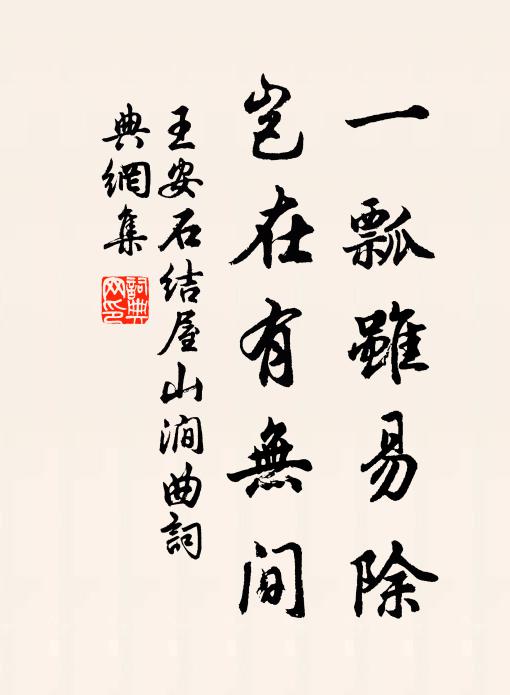 一瓢雖易除
豈在有無间
王安石结屋山澗曲詞
典網集
詞典
网印